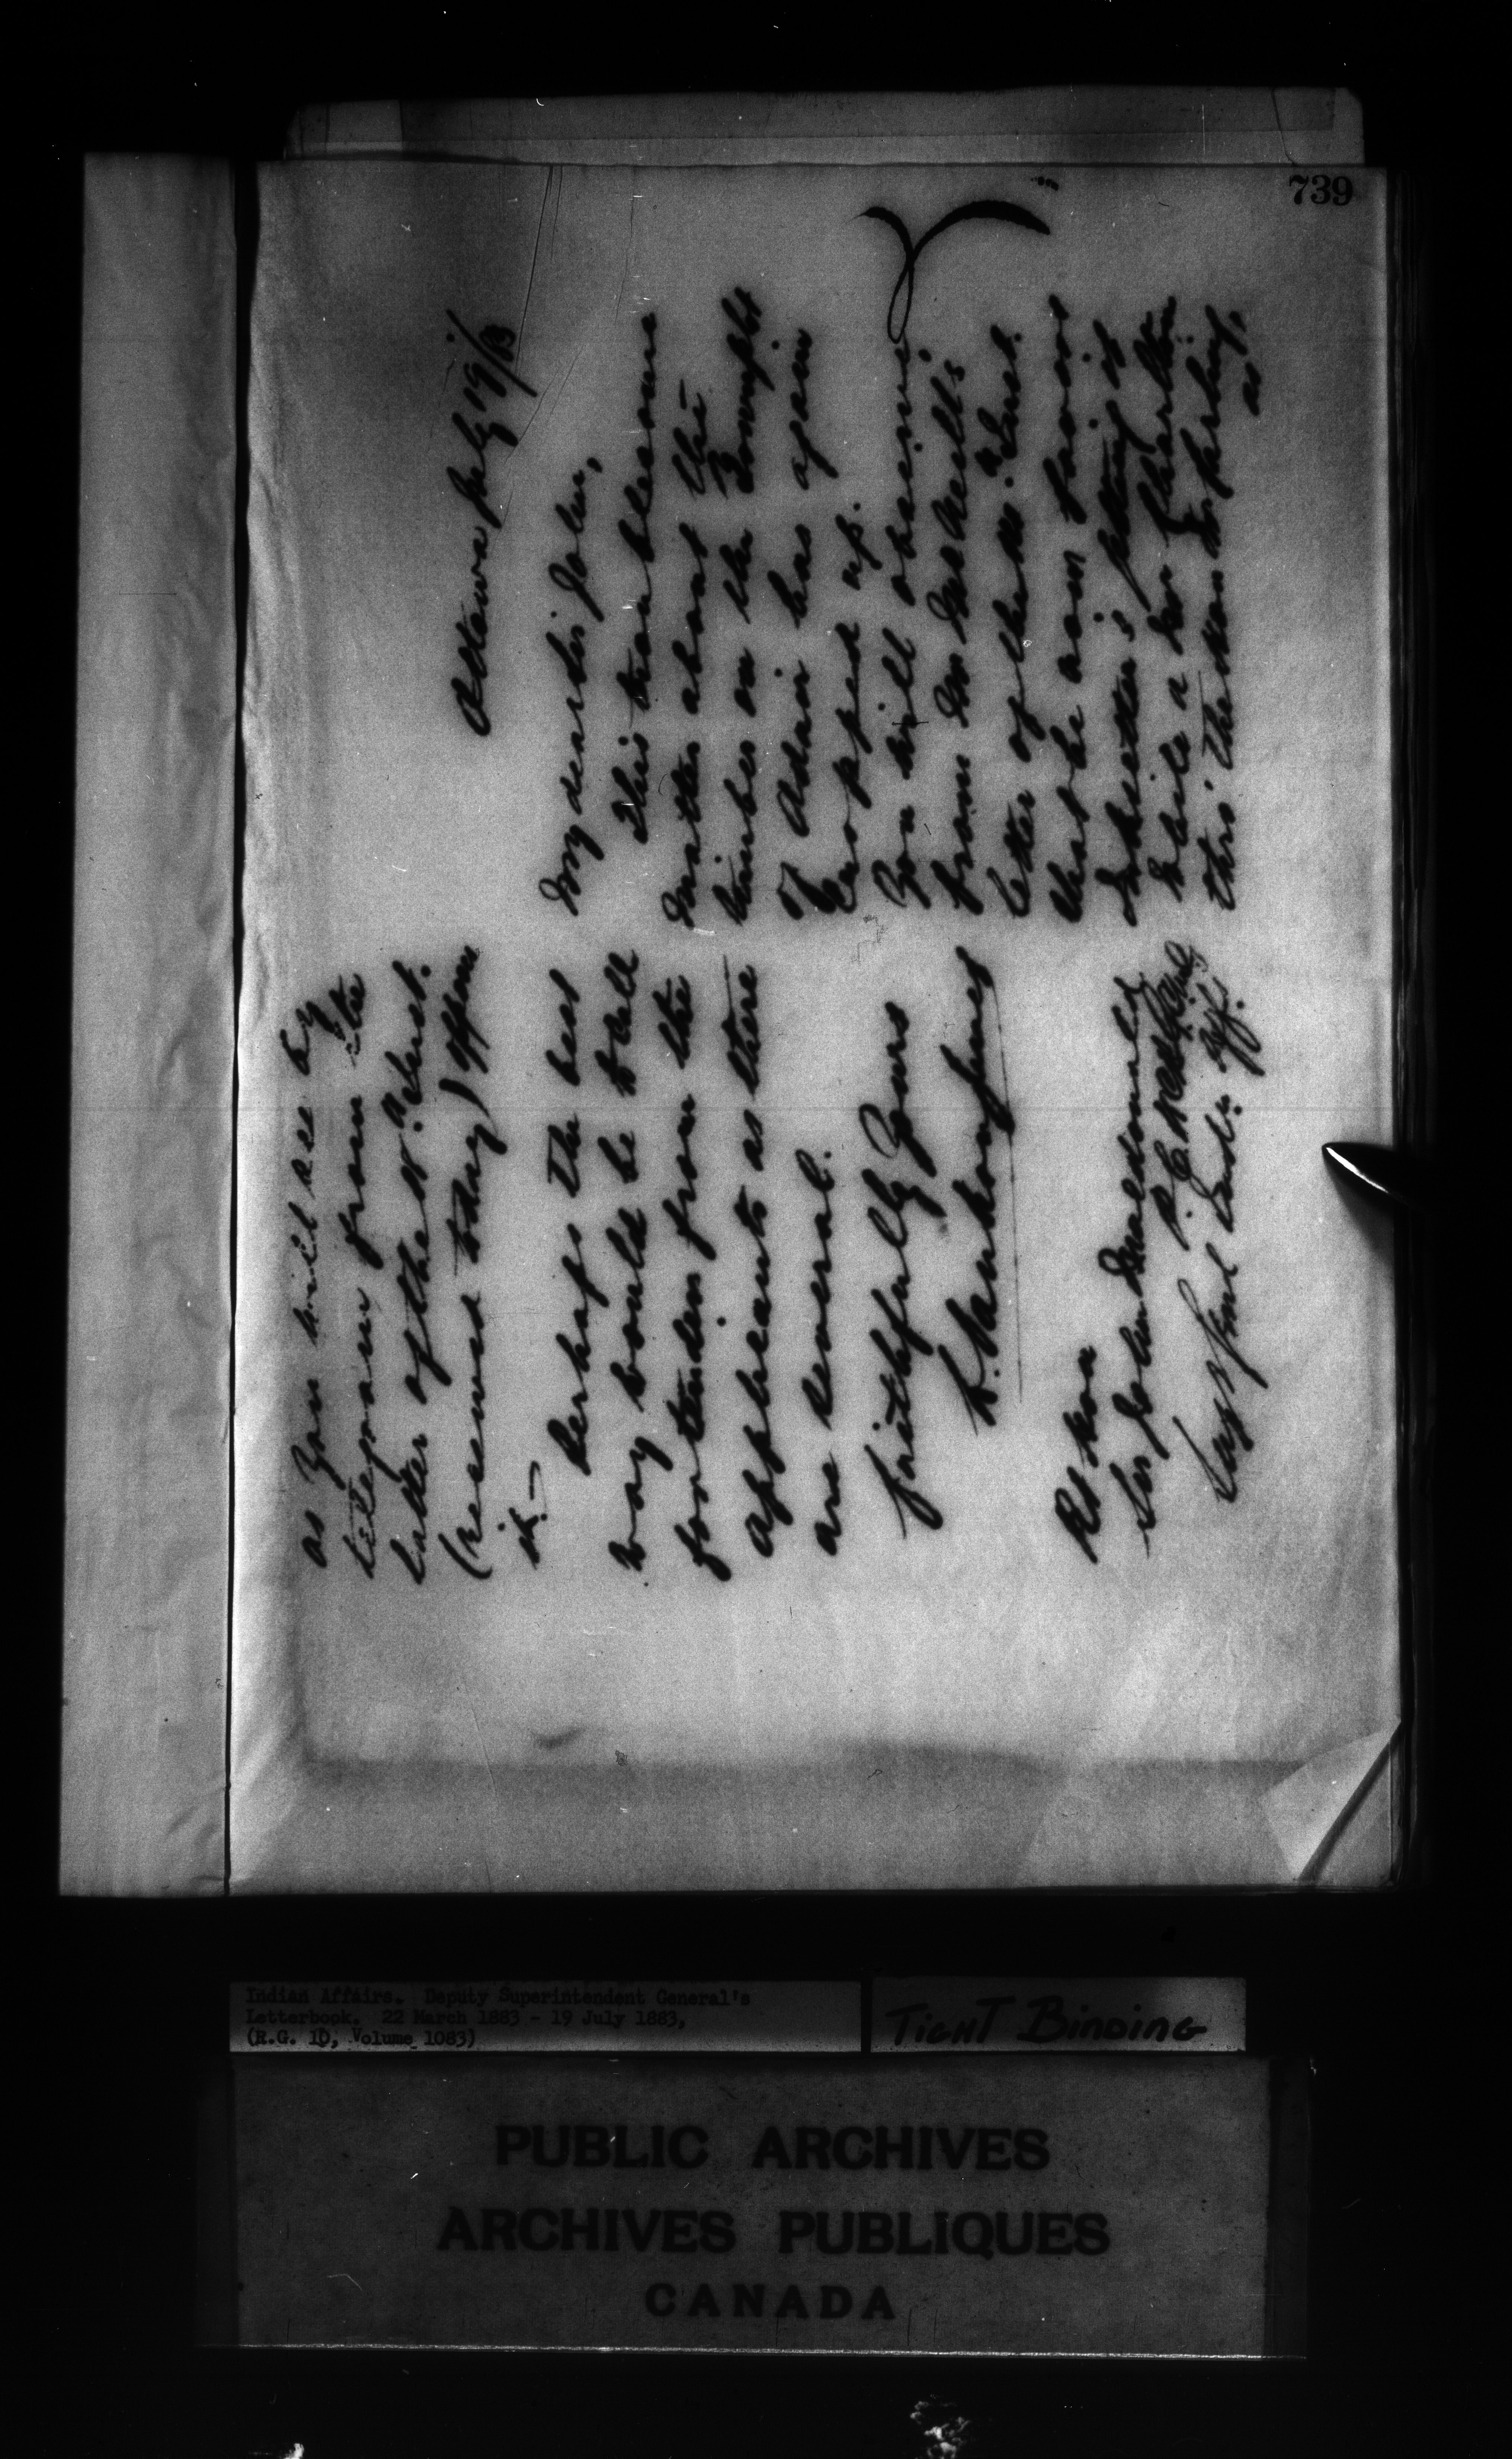 739
Ottawa July 19/83
My dear Sir John,
This troublesome
matter about the
timber on the Township
of Adair has again
cropped up.
You will observe
from Mr
letter of the 10th Inst.
that he now favors
getting it
while a Mr Charlton
thro' the Hon
as
as you will see by
telegram from the
latter of the 18th Inst.
(received today) oppose
it.—
Perhaps the best
way would be to call
for tenders from the
applicants as there
are several.
Faithfully Yours
L. Vankoughnet
Rt Hon
Sir John Macdonald
K.C.B.
Supt Genl Indn Aff.
Indian Affairs. Deputy Superintendent General's
Letterbook. 22 March 1883 - 19 July 1883,
(R.G. 10, Volume 1083)
TIGHT BINDING
PUBLIC ARCHIVES
ARCHIVES PUBLIQUES
CANADA